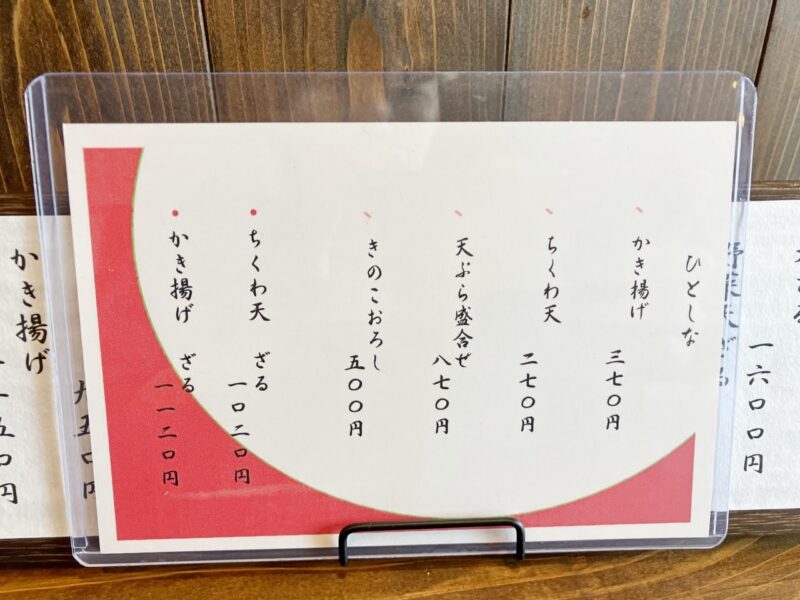 ひとしな
かき揚げ 三七〇円
ちくわ天 二七〇円
天ぷら盛合せ 八七〇円
きのこおろし 五〇〇円
ちくわ天 ざる 一〇二〇円
かき揚げ ざる 一一二〇円
一六〇〇円
かき揚げ